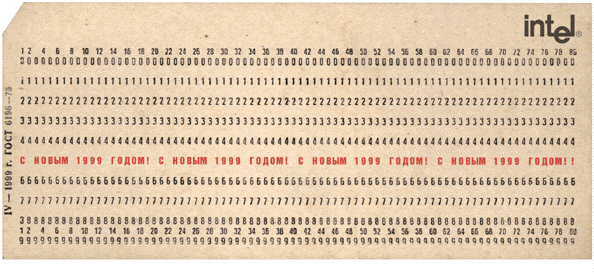 intel®
1 2 4 6 8 10 12 14 16 18 20 22 24 26 28 30 32 34 36 38 40 42 44 46 48 50 52 54 56 58 60 62 64 66 68 70 72 74 76 78 80
00000000000000000000000000000000000000000000000000000000000000000000000000000000
11111111111111111111111111111111111111111111111111111111111111111111111111111111
22222222222222222222222222222222222222222222222222222222222222222222222222222222
33333333333333333333333333333333333333333333333333333333333333333333333333333333
44444444444444444444444444444444444444444444444444444444444444444444444444444444
С НОВЫМ 1999 ГОДОМ! С НОВЫМ 1999 ГОДОМ! С НОВЫМ 1999 ГОДОМ! С НОВЫМ 1999 ГОДОМ!!
66666666666666666666666666666666666666666666666666666666666666666666666666666666
77777777777777777777777777777777777777777777777777777777777777777777777777777777
88888888888888888888888888888888888888888888888888888888888888888888888888888888
1 2 4 6 8 10 12 14 16 18 20 22 24 26 28 30 32 34 36 38 40 42 44 46 48 50 52 54 56 58 60 62 64 66 68 70 72 74 76 78 80
99999999999999999999999999999999999999999999999999999999999999999999999999999999
IV — 1999 г. ГОСТ 6198—75